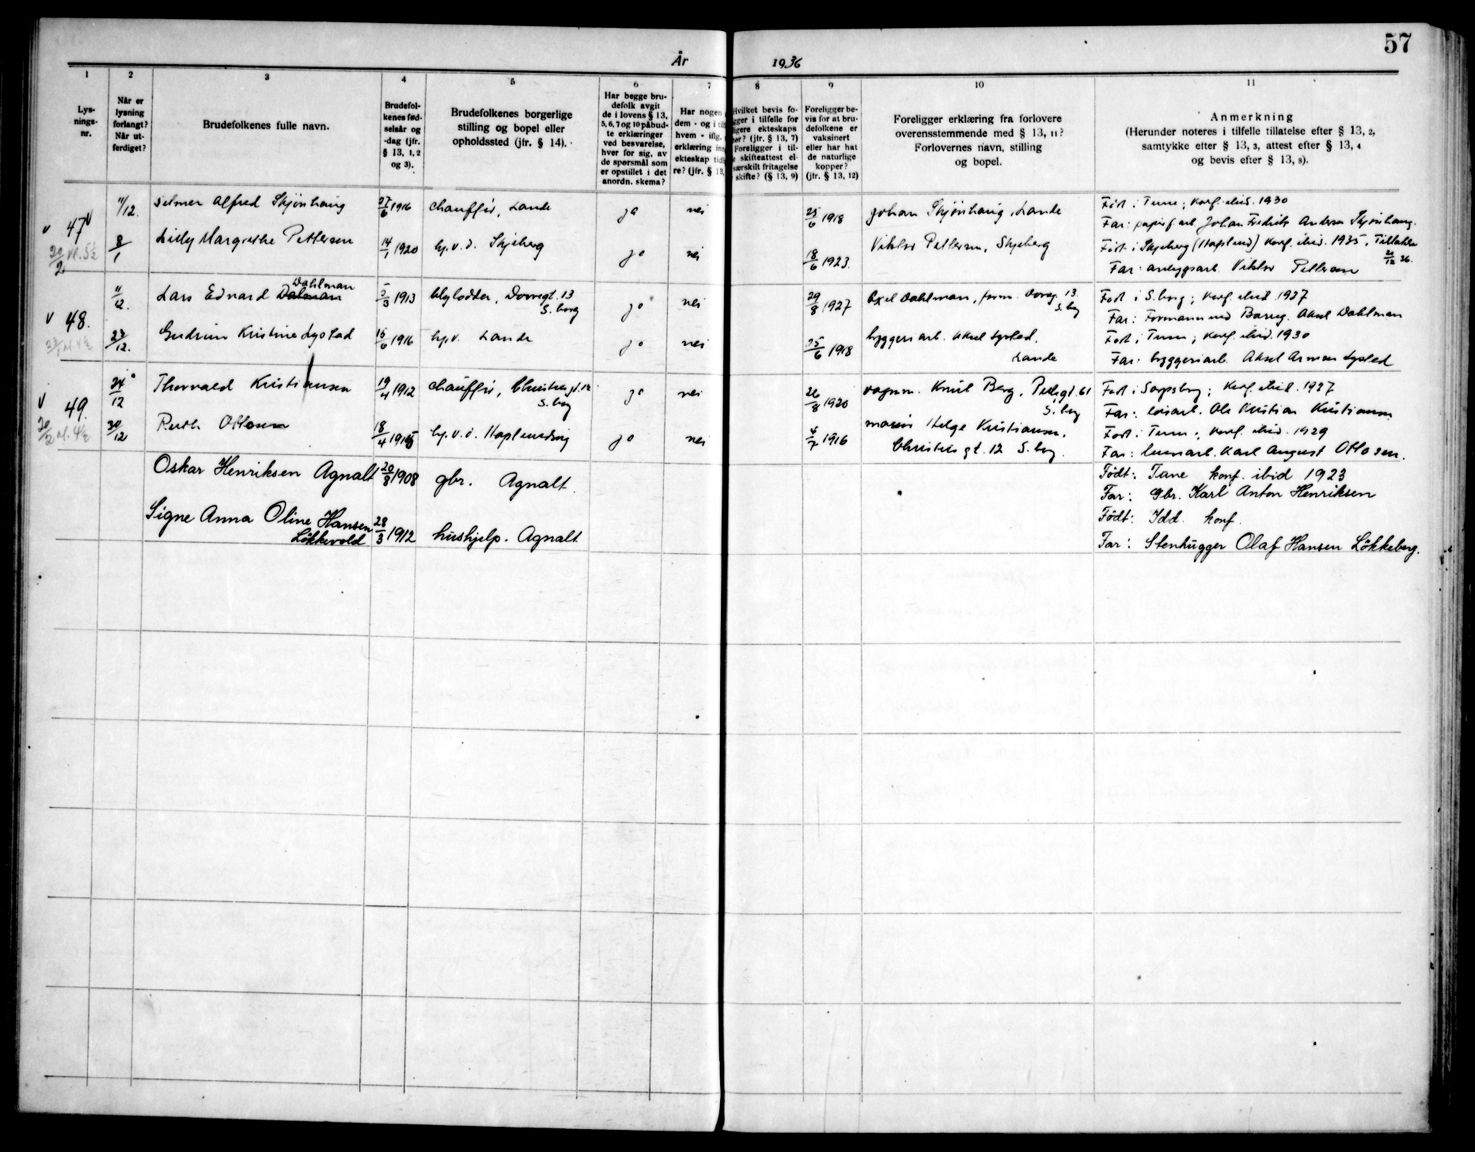 57
År 1936
1
Lysningsnr.
2
Når er lysning forlangt? Når utferdiget?
3
Brudefolkenes fulle navn.
4
Brudefolkenes fødselsår og -dag (jfr. § 13, 1, 2 og 3).
5
Brudefolkenes borgerlige stilling og bopel eller opholdssted (jfr. § 14).
6
Har begge brudefolk avgit de i lovens § 13, 5, 6, 7 og 10 påbudte erklæringer ved besvarelse, hver for sig, av de spørsmål som er opstillet i det anordn. skema?
7
Har nogen
dem - og i
hvem - iflg.
erklæring
ekteskap
re? (jfr. § 13,
8
Hvilket bevis fo-
ger i tilfelle for
ligere ekteskaps
er? (jfr. § 13, 7)
Foreligger i til-
skifteattest el-
særskilt fritagelse
skifte? (§ 13, 9)
9
Foreligger bevis for at brudefolkene er vaksinert eller har hat de naturlige kopper? (jfr. § 13, 12)
10
Foreligger erklæring fra forlovere overensstemmende med § 13, 11? Forlovernes navn, stilling og bopel.
11
Anmerkning
(Herunder noteres i tilfelle tillatelse efter § 13, 2, samtykke efter § 13, 3, attest efter § 13, 4 og bevis efter § 13, 8).
47 11/12. Selmer Alfred Skjønhaug 27/6 1916 chauffør, Lande ja nei 25/6 1918 Johan Skjønhaug, Lande Født i Tune; konf. ibid. 1930
Far: papirfarb Johan Fredrik Andersen Skjønhaug.
8/1 Lilly Margrethe Pettersen 14/1 1920 hj.v.d. Skjeberg ja nei 18/6 1923. Viktor Pettersen, Skjeberg Født i Skjeberg (Hafslund) konf. ibid. 1935, Tillatelse 21/12 36.
Far: anlegsarb. Viktor Pettersen
48. 11/12. Lars Edvard Dahlman 5/3 1913 Dovregt. 13 S.borg ja nei 29/8 1927 Axel Dahlman, form. Dovreg. 13 S.bg Født i S.borg; konf. ibid 1927
Far: Formann ved Borreg. Aksel Dahlman
23/12. Gudrun Kristine Lysted 15/6 1916 hj.v. Lande ja nei 25/6 1918 byggeriarb. Aksel Lysted, Lande Født i Tune; konf. ibid. 1930
Far: byggeriarb. Aksel Arman Lysted
49. 24/12 Thorvald Kristiansen 19/4 1912 chauffør, Christies gt. 12 S.borg ja nei 26/8 1920 vognm. Knut Berg, Pellygt. 61 S.bg Født i Sarpsborg; konf. ibid. 1927
Far: løsarb. Ole Kristian Kristiansen
30/12 Ruth Ottosen 18/4 1915 hj.v.d. Hafslundsøy ja nei 4/7 1916 Helge Kristiansen, Christies gt. 12 S.bg. Født i Tune; konf. ibid. 1929
Far: Karl August Ottosen.
Oskar Henriksen Agnalt 20/8 1908 gbr. Agnalt. Født: Tune konf. ibid 1923
Far: Gbr. Karl Anton Henriksen
Signe Anna Oline Hansen Løkkevold 28/3 1912 hushjelp. Agnalt Født: Idd. konf.
Far: Stenhugger Olaf Hansen Løkkeberg.